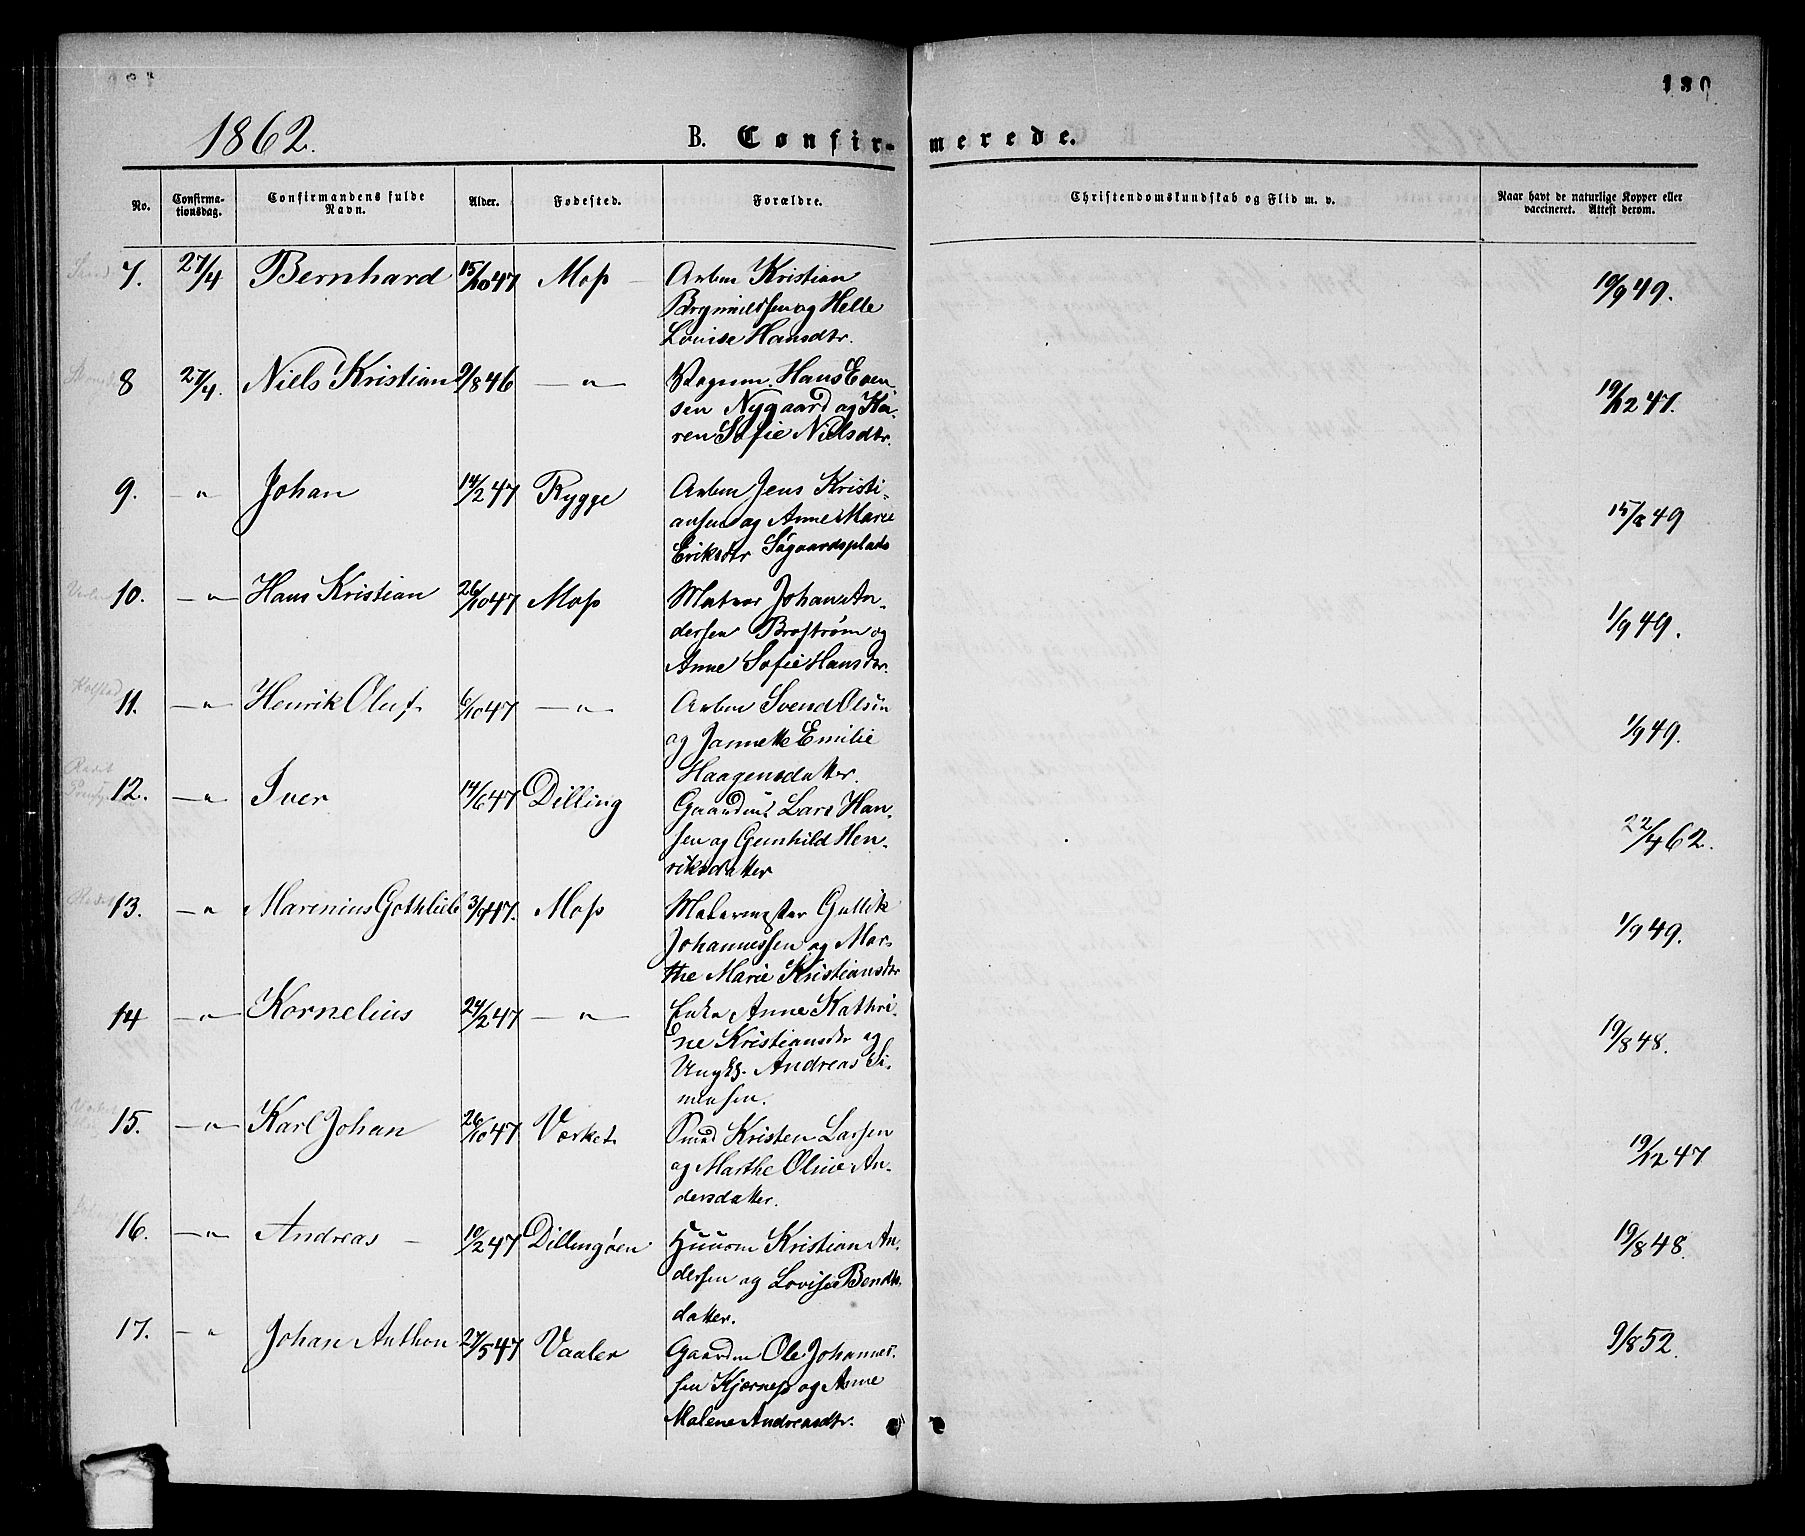 130
1862.
B. Confir-
merede.
No.
Confirma-
tionsdag.
Confirmandens fulde
Navn.
Alder.
Fødested.
Forældre.
Christendomskundskab og Flid m. v.
Naar havt de naturlige Kopper eller
vaccineret. Attest derom.
7. 27/4 Bernhard 15/10 47 Moss Arbm Kristian 19/9 49.
og Helle
Louise Hansdtr.
8 27/4. Niels Kristian 9/8 46 — " — Hans Even- 19/12 47.
sen Nygaard og Ka-
ren Sofie Nielsdtr.
9. " Johan 14/2 47 Rygge Arbm Jens Kristi- 15/8 49
ansen og Anne Marie
Eriksdtr Søgaardsplads
10. — " — Hans Kristian 26/10 47 Moss Matros Johan An- 1/9 49.
dersen Broström og
Anne Sofie Hansdtr.
11. — " — Henrik Oluf 6/10 47 — " — Arbm Svend Olsen 1/9 49.
og Jannette Emilie
Haagensdatter.
12. — " — Iver 14/6 47 Dilling Gaardm. Lars Han- 22/4 62.
sen og Gunhild Hen-
riksdatter
13. — " Marinius Gothlieb 3/9 47. Moss Malermester Gullik 1/9 49.
Johannessen og Mar-
the Marie Kristiansdtr
14 — " — Kornelius 24/2 47 — " — Enke Anne Kathri- 19/8 48.
ne Kristiansdtr og
Ungk. Andreas Si-
mensen.
15. — " — Karl Johan 26/10 47 Værket Smed Kristen Larsen 19/12 47
og Marthe Oline An-
dersdatter.
16. — " — Andreas — 10/2 47 Dillingøen Huusm Kristian An- 19/8 48.
dersen og Lovise Bendts-
datter.
17. — " Johan Anthon 27/5 47 Vaaler Gaardm Ole Johannes- 9/8 52.
sen Kjærnes og Anne
Malene Andreasdtr.